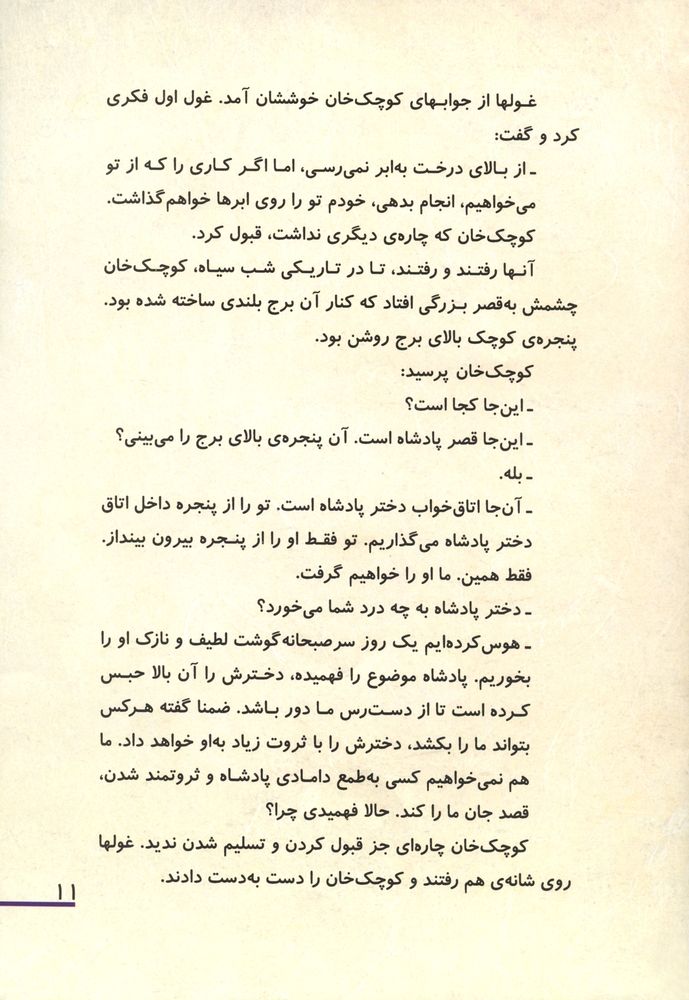 غولها از جوابهای کوچک‌خان خوششان آمد. غول اول فکری
کرد و گفت:
ـ از بالای درخت به‌ابر نمی‌رسی، اما اگر کاری را که از تو
می‌خواهیم، انجام بدهی، خودم تو را روی ابرها خواهم‌گذاشت.
کوچک‌خان که چاره‌ی دیگری نداشت، قبول کرد.
آنها رفتند و رفتند، تا در تاریکی شب سیاه، کوچک‌خان
چشمش به‌قصر بزرگی افتاد که کنار آن برج بلندی ساخته شده بود.
پنجره‌ی کوچک بالای برج روشن بود.
کوچک‌خان پرسید:
ـ این‌جا کجا است؟
ـ این‌جا قصر پادشاه است. آن پنجره‌ی بالای برج را می‌بینی؟
ـ بله.
ـ آن‌جا اتاق‌خواب دختر پادشاه است. تو را از پنجره داخل اتاق
دختر پادشاه می‌گذاریم. تو فقط او را از پنجره بیرون بینداز.
فقط همین. ما او را خواهیم گرفت.
ـ دختر پادشاه به چه درد شما می‌خورد؟
ـ هوس‌کرده‌ایم یک روز سرصبحانه‌گوشت لطیف و نازک او را
بخوریم. پادشاه موضوع را فهمیده، دخترش را آن بالا حبس
کرده است تا از دست‌رس ما دور باشد. ضمنا گفته هرکس
بتواند ما را بکشد، دخترش را با ثروت زیاد به‌او خواهد داد. ما
هم نمی‌خواهیم کسی به‌طمع دامادی پادشاه و ثروتمند شدن،
قصد جان ما را کند. حالا فهمیدی چرا؟
کوچک‌خان چاره‌ای جز قبول کردن و تسلیم شدن ندید. غولها
روی شانه‌ی هم رفتند و کوچک‌خان را دست به‌دست دادند.
۱۱